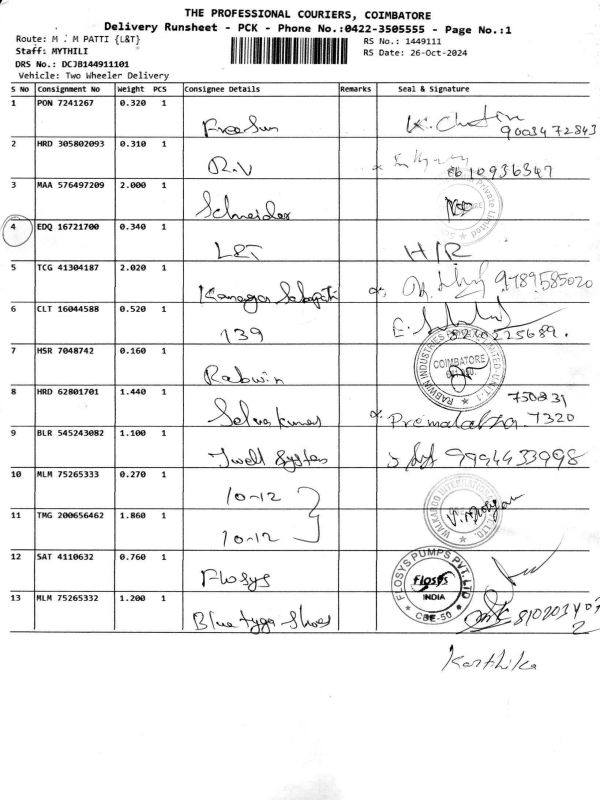 THE PROFESSIONAL COURIERS, COIMBATORE
Delivery Runsheet - PCK - Phone No.:0422-3505555 - Page No.:1
Route: M . M PATTI {L&T}
RS No.: 1449111
Staff: MYTHILI
RS Date: 26-Oct-2024
DRS No.: DCJB144911101
Vehicle: Two Wheeler Delivery
S No Consignment No Weight PCS Consignee Details Remarks Seal & Signature
1 PON 7241267 0.320 1
9003472843
2 HRD 305802093 0.310 1
R.V
3 MAA 576497209 2.000 1
Schneider
Private Limited
4 EDQ 16721700 0.340 1
L&T H/R
5 TCG 41304187 2.020 1
9789585020
6 CLT 16044588 0.520 1
139
7 HSR 7048742 0.160 1
Rabwin
RABWIN INDUSTRIES
COIMBATORE
8 HRD 62801701 1.440 1
Selvakumar
Premalatha 7320
9 BLR 545243082 1.100 1
Jwell System 9994433998
10 MLM 75265333 0.270 1
10-12
11 TMG 200656462 1.860 1
10-12
12 SAT 4110632 0.760 1
Flosys
FLOSYS PUMPS PVT. LTD
Flosys
INDIA
CBE-50
13 MLM 75265332 1.200 1
Blue tyga Shoes
Karthika